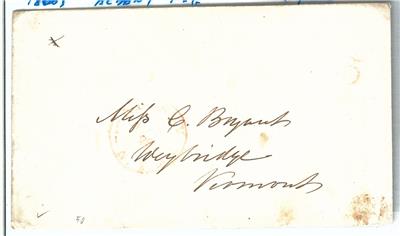 Miss C. Bryant
Weybridge
Vermont
50